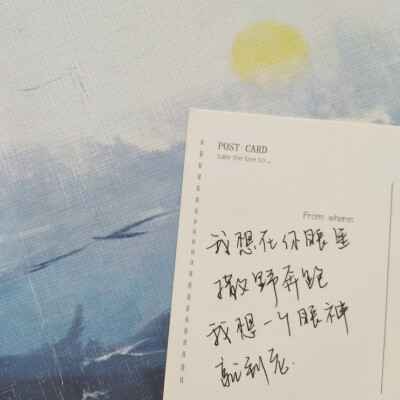 POST CARD
take the love to ..
From where:
我想在你眼里
撒野奔跑
我想一个眼神
就到老.